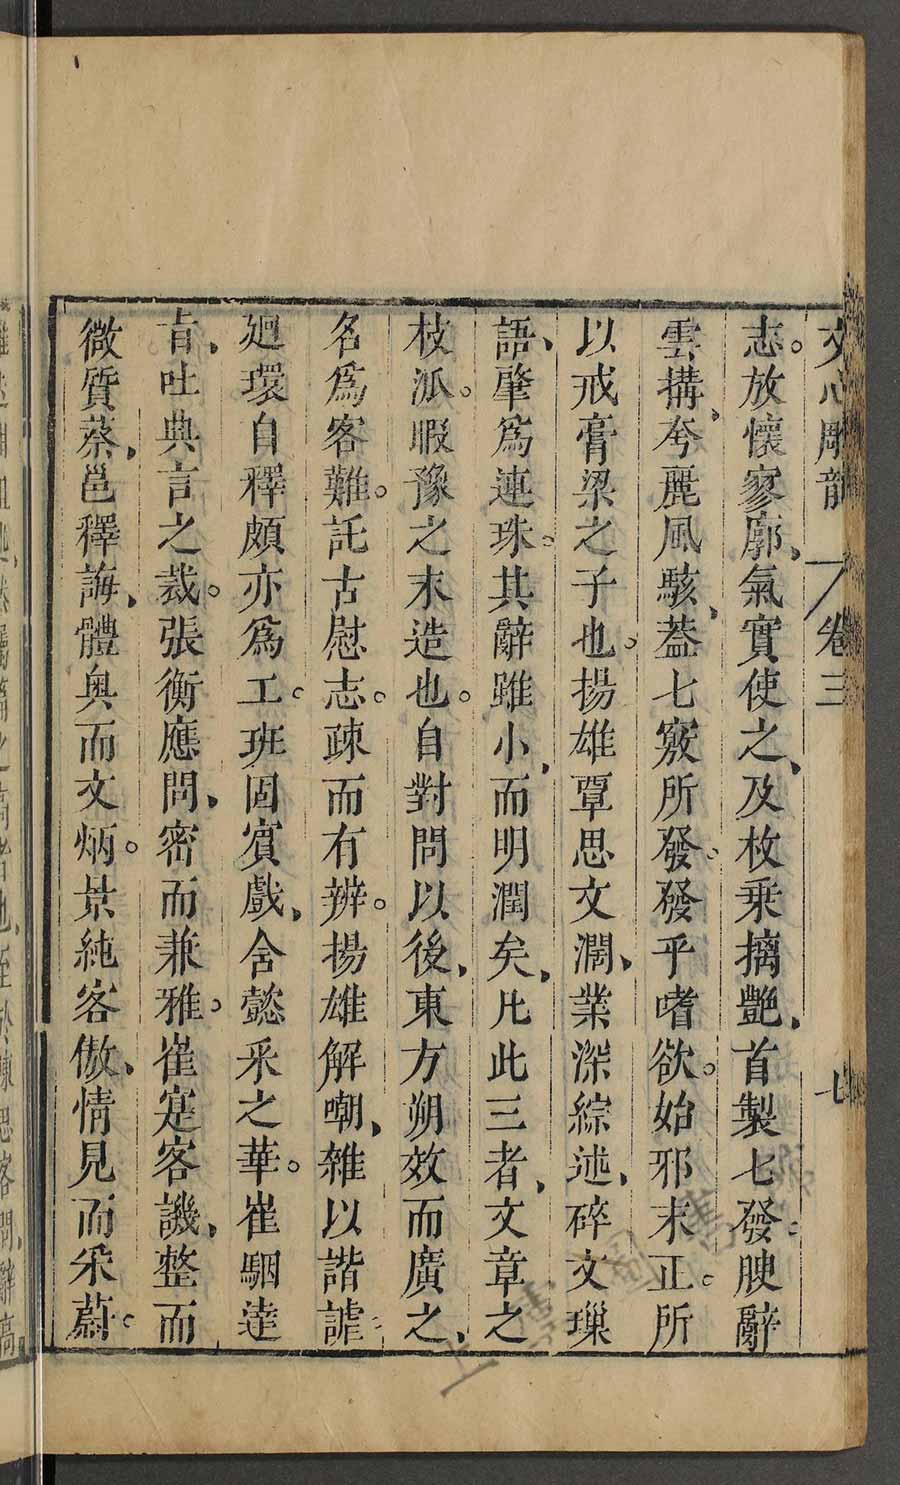 文心雕龍 卷三 七
志。放懷寥廓、氣實使之、及枚乗摛艷、首製七發、腴辭
雲搆、夸麗風駭、葢七竅所發。發乎嗜欲。始邪末正。所
以戒膏粱之子也。揚雄覃思文濶、業深綜述、碎文璅
語、肇爲連珠。其辭雖小、而明潤矣、凡此三者、文章之
枝泒。暇豫之末造也。自對問以後、東方朔效而廣之、
名爲客難。託古慰志。疎而有辨。揚雄解嘲、雜以諧謔
廻環自釋頗亦爲工。班固賓戲、含懿釆之華。崔駰逹
㫖、吐典言之裁。張衡應問、密而兼雅。崔寔客譏、整而
微質蔡、邕釋誨、體奥而文炳。景純客傲、情見而釆蔚。